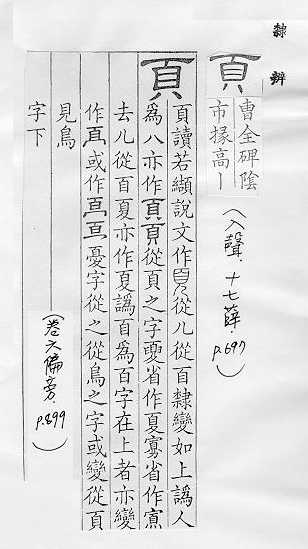 隸辨
頁 曹全碑陰
市掾高｜
(入聲.十七薛. p.697)
頁 頁讀若纈說文作𦣻從儿從百隸變如上譌人
為八亦作頁頁從頁之字㚆省作夏寡省作𡩋
去儿從百夏亦作夏譌百為百字在上者亦變
作𦣻或作𦣻亘憂字從之從鳥之字或變從頁
見鳥
字下
(卷六偏旁. p.899)